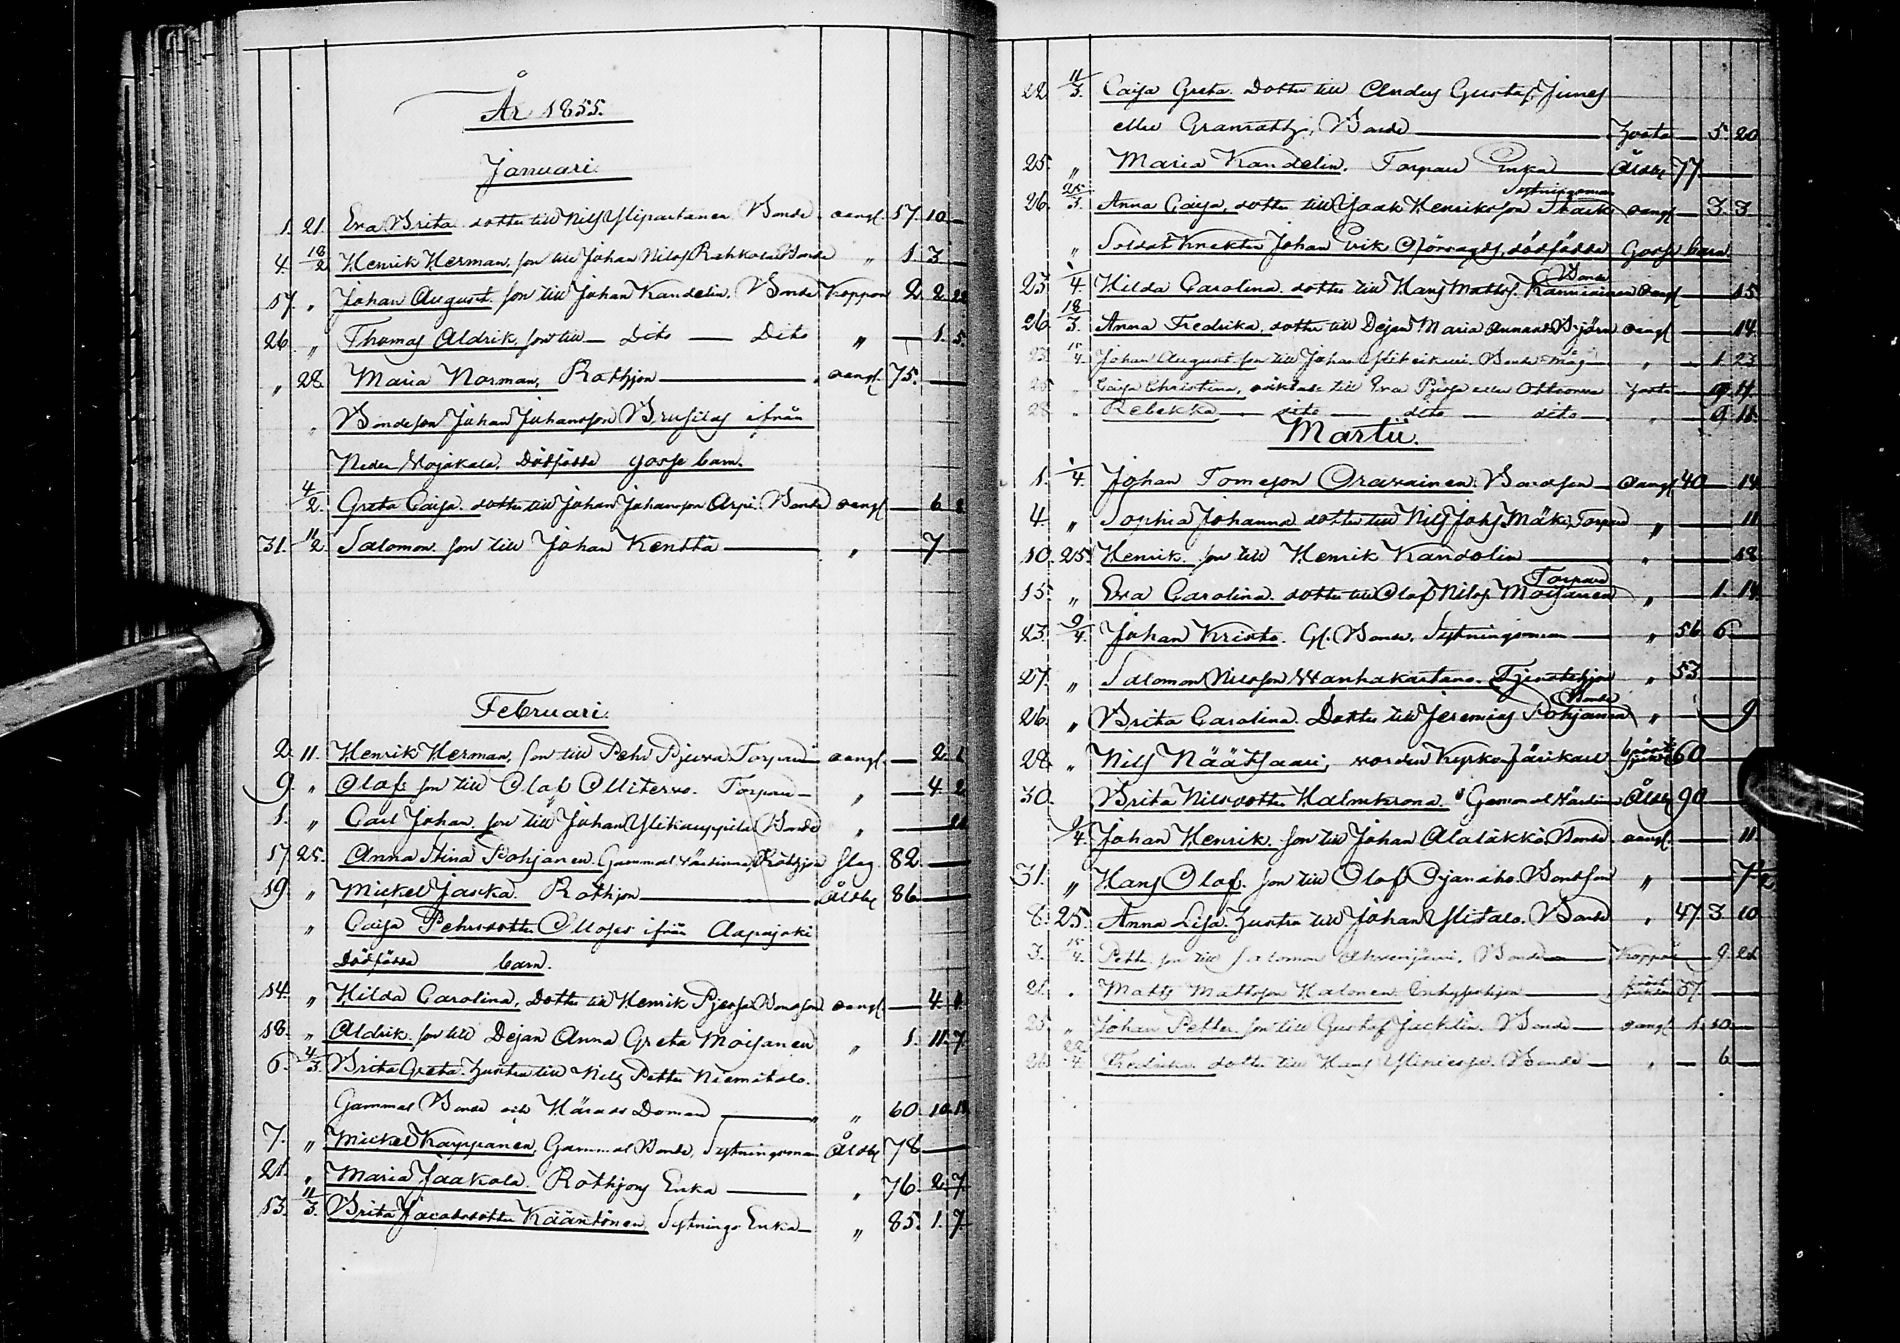 År 1855.
Januari.
1. 21. Eva Brita dotter till Nils Ylipartanen Bonde oangf. 17. 10 —
4. 18/2 Henrik Herman, son till Johan Nilsf. Rahkola Bonde „ 1. 3 —
17. „ Johan August. son till Johan Kandelin. Bonde Koppor 2. 2. 22
26. „ Thomas Aldrik, son till — Dito — Dito „ — 1. 5.
„ 28. Maria Norman, Rothjon — oangf. 75. —
„ Bondeson Johan Johansson Brusilas ifrån
Neder Vojakala. Dödfödde gosse barn.
4/2. Greta Caisa. dotter till Johan Johansson Arpi. Bonde oangf — 6
31. 11/2 Salomon. son till Johan Kenttä — „ — 7
Februari.
2. 11. Henrik Herman, son till Pehr Pjuva Torpare oangf. — 2.
9. „ Olof. son till Olof Torpare — „ — 4. 2
1. „ Carl Johan. son till Johan Ylikauppila Bonde „ —
17. 25. Anna Stina Pohjanen. Gammal Rothjon slag. 82. —
19. „ Mickel Jaska. Rothjon — Åldd. 86 —
„ Caisa Pehrsdotter ifrån Aapajoki
Dödfödde barn.
14. „ Hilda Carolina, Dotter till Henrik oangf. — 4.
18. „ Aldrik. son till Dejan Anna Greta Moisanen „ 1. 11. 7
6. 4/3. Brita Greta. hustru till Nils Petter Niemitalo.
Gammal Bonde och Härads Doman — „ 60. 10.
7. „ Mickel Kayppanen, Gammal Bonde, Sytningsman Åldd. 78 —
21. „ Maria Jaakola. Rothjons Enka — „ 76. 2. 7.
13. 11/3. Brita Jacobsdotter Kääntönen, Sytnings Enka — „ 85. 1. 7.
22. 11/3. Caisa Greta. Dotter till Anders Gustaf. Junes
eller Granroth, Bonde — hosta — 5. 20
25. „ Maria Kandelin. Torpare Enka — Åldd. 77 —
Sytningsman
26. 25/3. Anna Caisa, dotter till Isaak Henriksson oangf — 3. 3
„ Soldat Knekten Johan Erik dödfödde Gosse barn
Bonde
23. 1/4. Hilda Carolina. dotter till Hans Mattsf. Kanniainen oangf — 15
26. 18/3. Anna Fredrika, dotter till Dejan Maria Björn oangf — 14.
15/4. Johan August son till Johan Bonde Måg „ — 1. 23
Caisa Christina, till Eva hosta — 9. 4.
28. „ Rebekka — dito — dito — dito — „ 9. 18.
Martii.
1. 1/4. Johan Tomeson Oravainen. Bondson — oangf 40 — 14
4. „ Sophia Johanna dotter till Nils Johs. Mäki, Torpare „ — 11
10. 25. Henrik. son till Henrik Kandolin — „ — 18.
Torpare
15. „ Eva Carolina. dotter till Olof Nilsf. Moisanen „ — 1. 14.
23. 9/4. Johan Kristo. Gl. Bonde. Sytningsman — „ 56. 6. —
27. „ Salomon Nilsson Wanhakartano. Tjenstehjon „ 53. —
Bonde
26. „ Brita Carolina. Dotter till Jeremias Pohjanen „ — 9
28. „ Nils Näätsaari, vorden Kyrko 60 —
30. „ Brita Nilsdotter Halmkrona. Gammal Åldd. 90 —
9/4. Johan Henrik. son till Johan Alaläkkö. Bonde oangf. — 11.
31. „ Hans Olof. son till Olof Ojanaho. Bondson „ — 7½
8. 25. Anna Lisa. hustru till Johan Ylitalo. Bonde „ 47. 3 10
3. 15/4. Petter son till Salomon Bonde — Koppor — 9. 21
21. „ Matts Mattsson Halonen Inhyseshjon — 57. —
25. „ Johan Petter son till Gustaf Jacklin. Bonde — oangf 1. 10 —
26. 22/4. Fredrika dotter till Hans Bonde — „ — 6 —